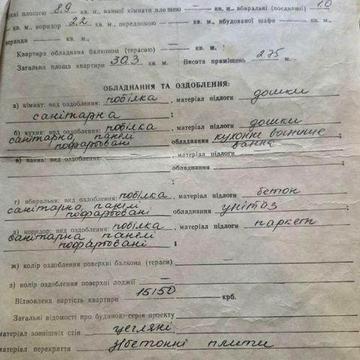 ої площею 8,9 кв. м, ванної кімнати площею — кв. м, вбиральні (поєднаної) 1,0
кв. м, коридор 2,2 кв. м, передпокою — кв. м, вбудованої шафи — кв. м,
веранди — кв. м.
Квартира обладнана балконом (терасою) — кв. м.
Загальна площа квартири 30,3 кв. м. Висота приміщень 2,75 м.
ОБЛАДНАННЯ ТА ОЗДОБЛЕННЯ:
а) кімнат: вид оздоблення: побілка, матеріал підлоги дошки
санітарна ;
б) кухні: вид оздоблення: побілка, матеріал підлоги дошки
санітарно, панелі обладнання кухонне вогнище
пофарбовані ванна
в) ванна: вид оздоблення матеріал підлоги
обладнання ;
г) вбиральні: вид оздоблення: побілка, матеріал підлоги бетон
санітарно, панелі обладнання унітаз
пофарбовані
д) коридор: вид оздоблення: побілка, матеріал підлоги паркет
санітарна, панелі ;
пофарбовані
ж) колір оздоблення поверхні балкона (тераси) —
з) колір оздоблення поверхні лоджії —
Відновлена вартість квартири 15150 крб.
Загальні відомості про будинок: серія проекту
матеріал зовнішніх стін цегляні
матеріал перекриття з/бетонні плити